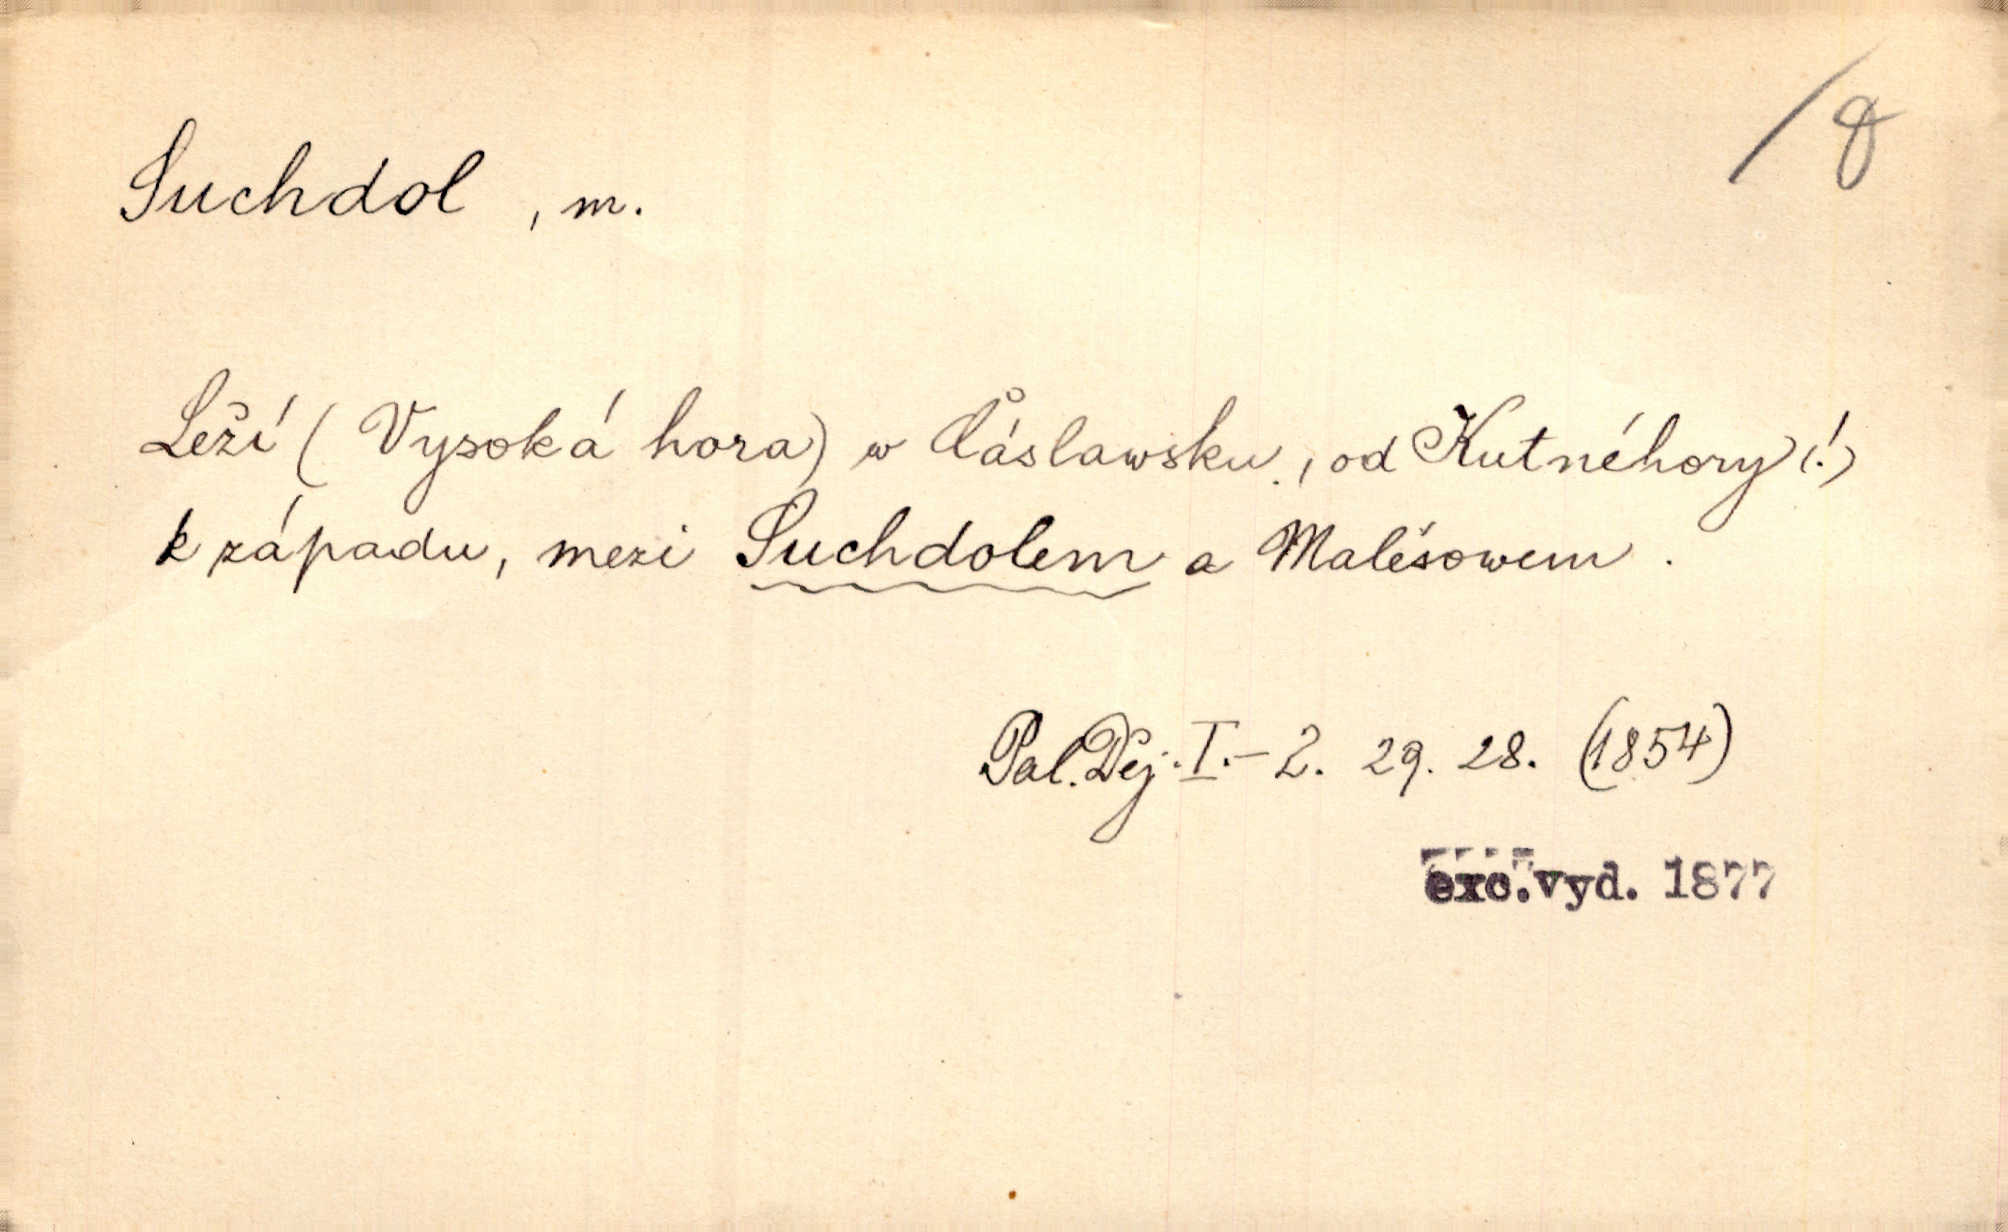 /8
Suchdol , m.
Leží ( Vysoká hora) w Čáslawsku , od Kutnéhory (!)
k západu, mezi Suchdolem a Malešowem .
Pal. Děj. I.- 2. 29. 28. (1854)
exc.vyd. 1877